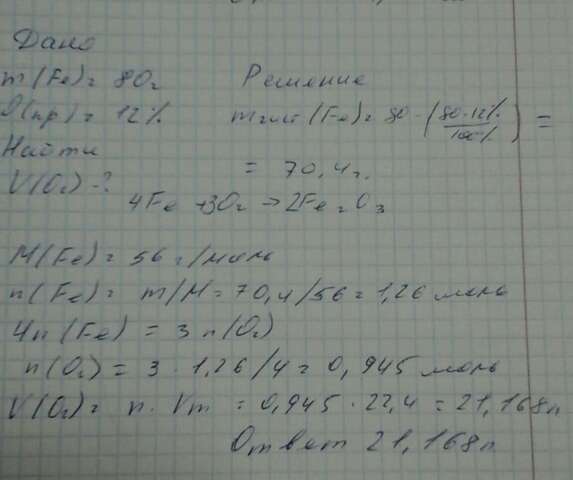 Дано
m(Fe) = 80г Решение
ω(пр) = 12% mчист(Fe) = 80 - (80·12% / 100%) =
Найти
= 70,4г.
V(O₂) - ?
4Fe + 3O₂ → 2Fe₂O₃
M(Fe) = 56 г/моль
n(Fe) = m/M = 70,4/56 = 1,26 моль
4n(Fe) = 3n(O₂)
n(O₂) = 3 · 1,26/4 = 0,945 моль
V(O₂) = n · Vm = 0,945 · 22,4 = 21,168л
Ответ 21,168л